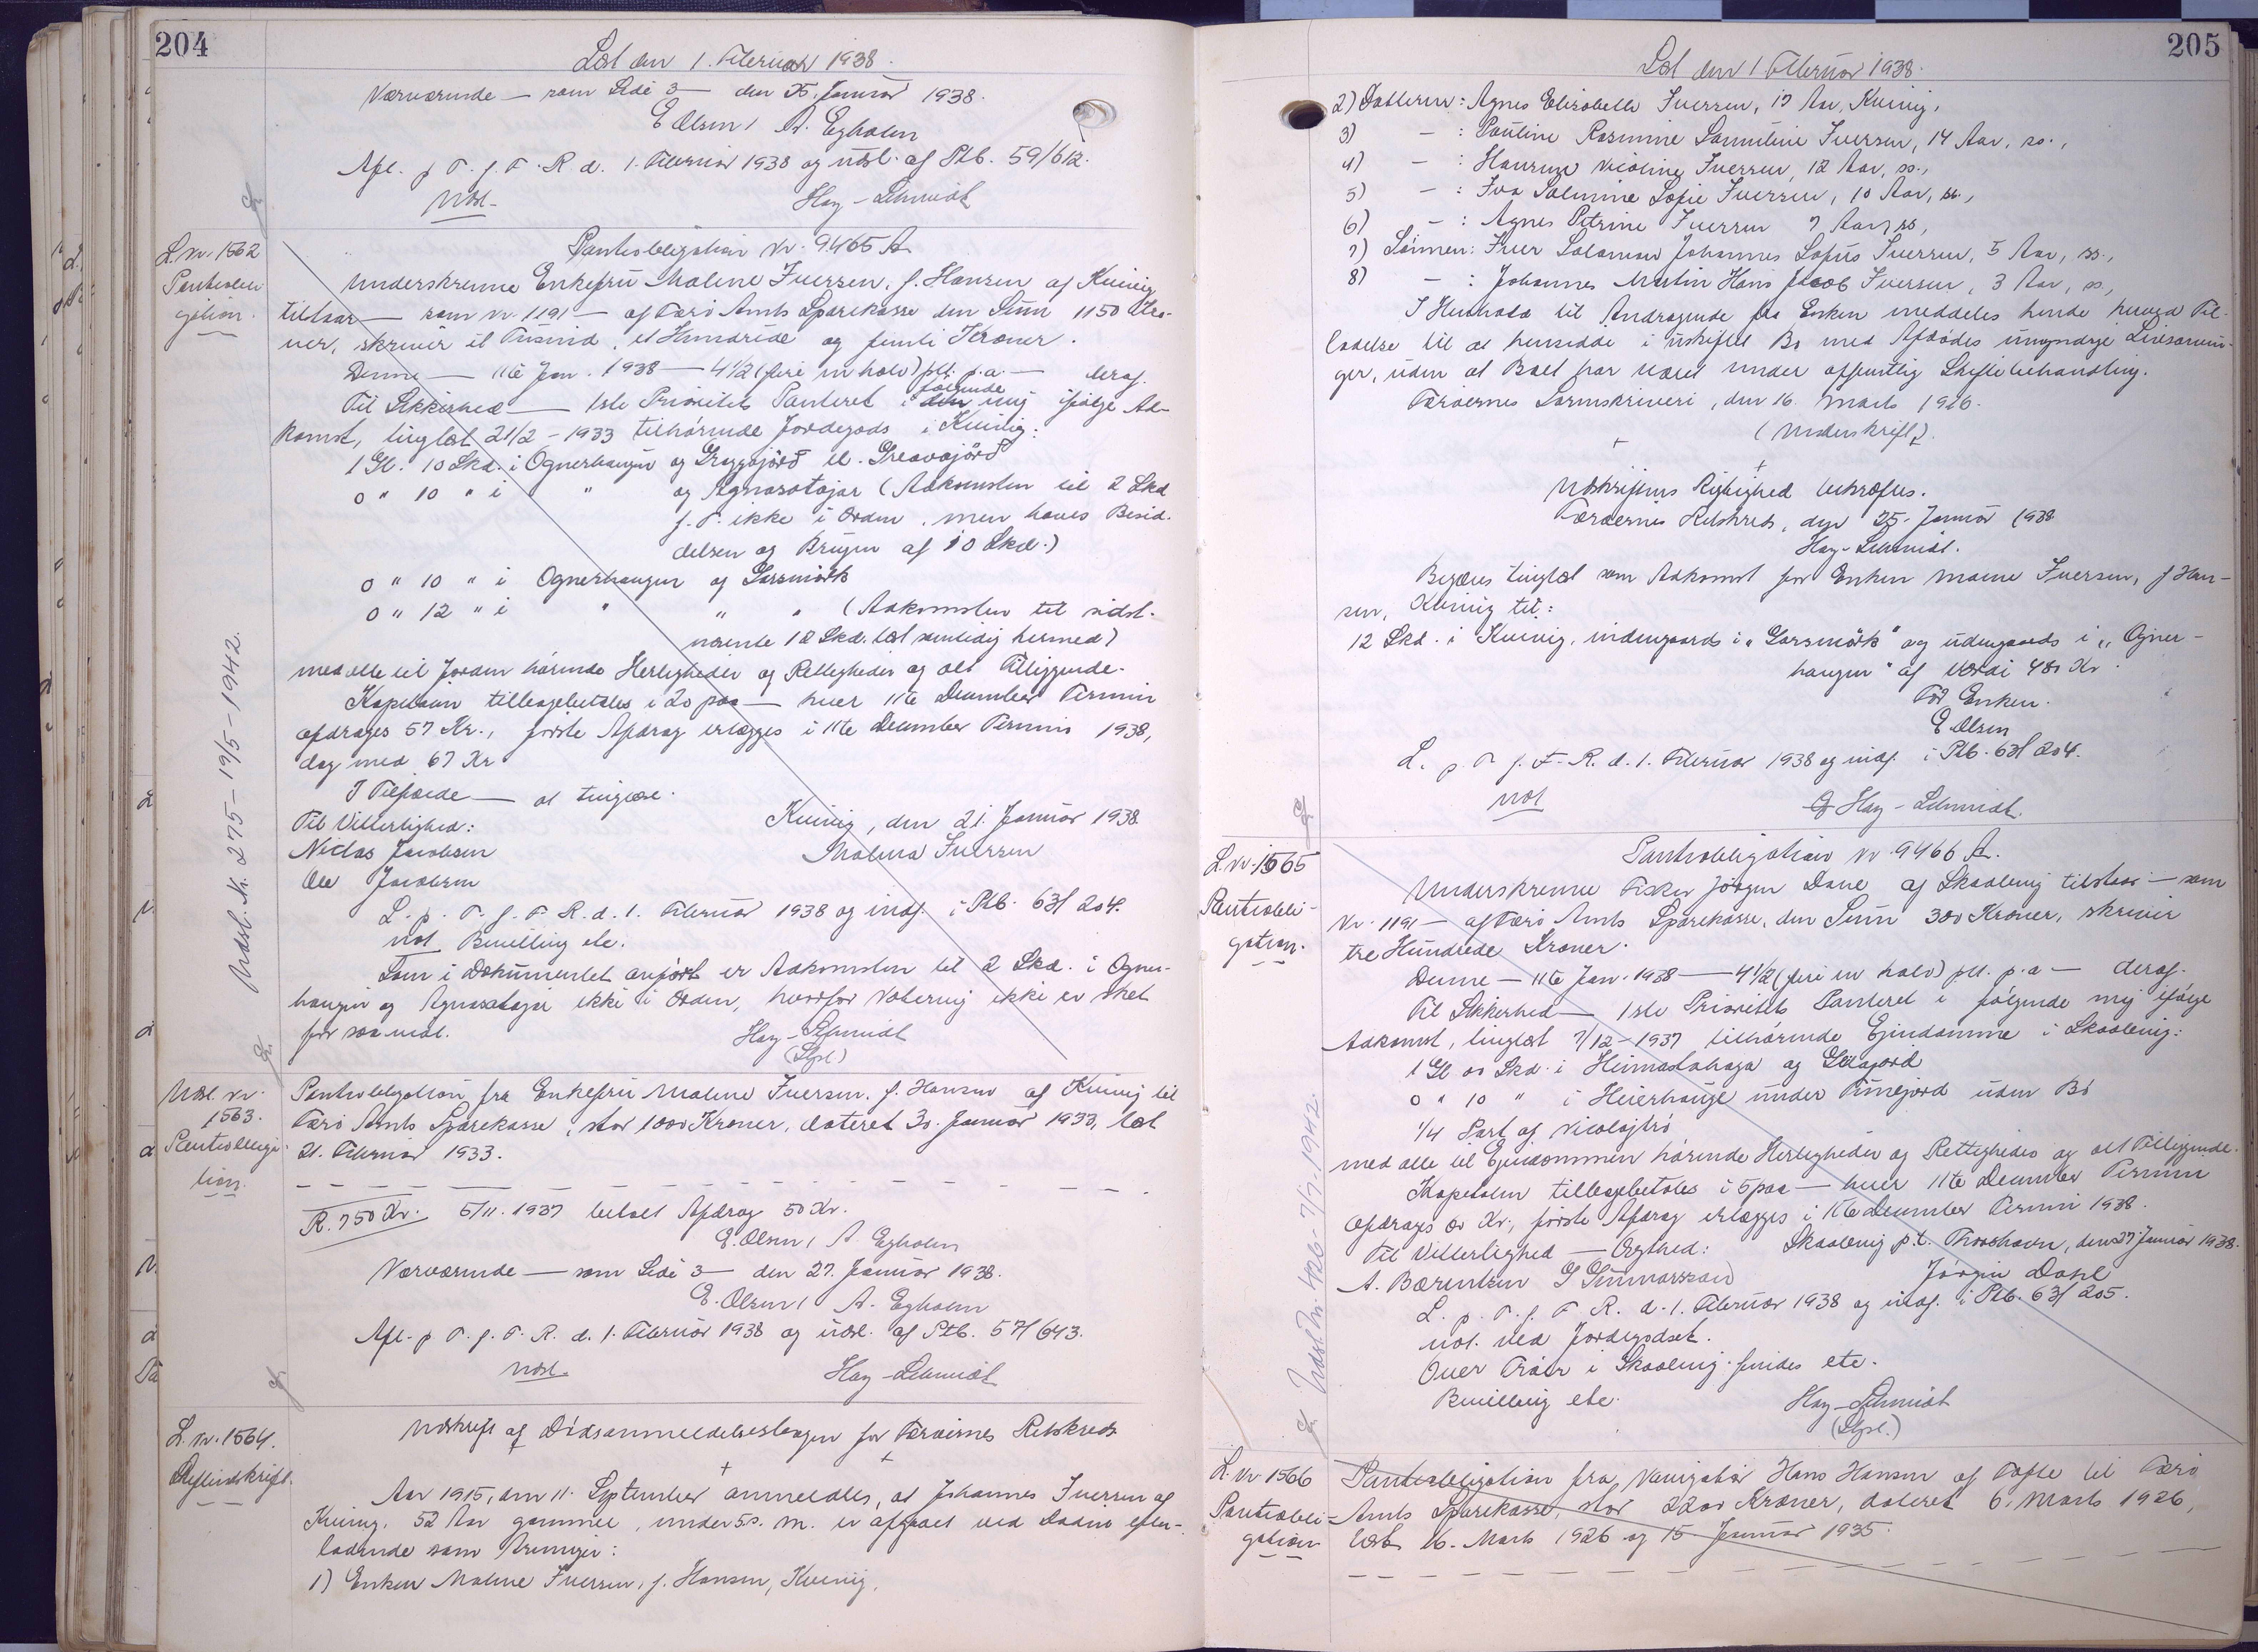 204
Læst den 1. Februar 1938.
Nærværende — som Side 3 — den 25. Januar 1938.
E Olsen / A. Egholm
Afl. p T. f. F. R d. 1. Februar 1938 og udsl. af Ptb. 59/612.
Udsl.
Hay-Schmidt
L. nr. 1562
Pantobli
gation.
Udsl. Nr. 275 - 19/5 - 1942.
Pantobligation Nr. 9465 A
Underskrevne Enkefru Malene Iversen, f. Hansen af Kvivig
tilstaar — som Nr. 1191 — af Færø Amts Sparekasse den Sum 1150 Kro-
ner, skriver et Tusind, et Hundrede og femti Kroner.
Denne — 11te Jan. 1938 — 4 1/2 (fire en halv) pCt. p.a. — deraf.
Til Sikkerhed — 1ste Prioritets Panteret i følgende mig ifølge Ad-
komst, tinglæst 21/2 - 1933 tilhørende Jordegods i Kvivig:
1 Gl. 10 Skd. i Ognerhaugen og Gryggjörd el. Greavajörd
0 " 10 " i " og Agnarstajar (Adkomsten til 2 Skd
f. T. ikke i Orden, men haves Besid-
delsen og Brugen af 10 Skd.)
0 " 10 " i Ognerhaugen og Garsmørk
0 " 12 " i " " " (Adkomsten til sidst-
nævnte 12 Skd. læst samtidig hermed)
med alle til Jorden hørende Herligheder og Rettigheder og alt Tilliggende.
Kapitalen tilbagebetales i 20 paa — hver 11te December Termin
afdrages 57 Kr., første Afdrag erlægges i 11te December Termin 1938,
dog med 67 Kr
I Tilfælde — at tinglæse.
Til Vitterlighed:
Kvivig, den 21. Januar 1938.
Niclas Jacobsen
Malena Iversen
Ole Jacobsen
L. p. T. f. F. R. d. 1. Februar 1938 og indf. i Ptb. 63/204.
not Bevilling etc.
Som i Dokumentet anført er Adkomsten til 2 Skd. i Ogner-
haugen og Agnarstajar ikke i Orden, hvorfor Notering ikke er sket
for saa vidt.
Hay-Schmidt
(Stpl.)
Udsl. nr.
1563.
Pantobliga
tion.
Pantobligation fra Enkefru Malene Iversen, f. Hansen af Kvivig til
Færø Amts Sparekasse, stor 1000 Kroner, dateret 30. Januar 1933, læst
21. Februar 1933.
R. 750 Kr. 5/11. 1937 betalt Afdrag 50 Kr.
E. Olsen / A. Egholm
Nærværende — som Side 3 — den 27. Januar 1938.
E. Olsen / A. Egholm
Afl. p T. f. F. R. d. 1. Februar 1938 og udsl. af Ptb. 57/643.
Udsl.
Hay-Schmidt
L. nr. 1564.
Skifteudskrift.
Udskrift af Dødsanmeldelsesbogen for Færøernes Retskreds
Aar 1915, den 11. September anmeldtes, at Johannes Iversen af
Kvivig, 52 Aar gammel, under 5. s. M. er afgaaet ved Døden efter-
ladende som Arvinger:
1) Enken Malene Iversen, f. Hansen, Kvivig,
205
Læst den 1 Februar 1938.
2) Datteren: Agnes Elisabeth Iversen, 17 Aar, Kvivig,
3) - : Pauline Rosmine Sanneline Iversen, 14 Aar, ss.,
4) - : Hansine Nicoline Iversen, 12 Aar, ss.,
5) - : Iva Salmine Sofie Iversen, 10 Aar, ss.,
6) - : Agnes Petrine Iversen 7 Aar, ss,
7) Sønnen: Iver Salomon Johannes Sofus Iversen, 5 Aar, ss.,
8) - : Johannes Martin Hans Jacob Iversen, 3 Aar, ss,
I Henhold til Andragende fra Enken meddeles hende herved Til-
ladelse til at hensidde i uskiftet Bo med Afdødes umyndige Livsarvin-
ger, uden at Boet har været under offentlig Skiftebehandling.
Færøernes Sorenskriveri, den 16. Marts 1926.
(Underskrift).
Udskriftens Rigtighed bekræftes.
Færøernes Retskreds, den 25. Januar 1938
Hay-Schmidt.
Begæres tinglæst som Adkomst for Enken Malene Iversen, f Han-
sen, Kvivig til:
12 Skd. i Kvivig, indengaards i "Garsmörk" og udengaards i "Ogner-
haugen" af Værdi 480 Kr.
For Enken.
E. Olsen
L. p. T. f. F. R. d. 1. Februar 1938 og indf. i Ptb. 63/204.
not
Hay-Schmidt.
L. nr. 1565
Pantobli-
gation.
Udsl. Nr. 426 - 7/7. 1942.
Pantobligation nr. 9466 A.
Underskrevne Fisker Jörgen Dahl af Skaalevig tilstaar — som
Nr. 1191 — af Færø Amts Sparekasse, den Sum 300 Kroner, skriver
tre Hundrede Kroner.
Denne — 11te Jan. 1938 — 4 1/2 (fire en halv) pCt. p.a — deraf.
Til Sikkerhed — 1ste Prioritets Panteret i følgende mig ifølge
Adkomst, tinglæst 7/12 - 1937 tilhørende Ejendomme i Skaalevig:
1 Gl 00 Skd. i Heimastahaga og
0 " 10 " i Heierhauge under Tunejord uden Bø
1/4 Part af
med alle til Ejendommen hørende Herligheder og Rettigheder og alt Tilliggende.
Kapitalen tilbagebetales i 5 paa — hver 11te December Termin
afdrages Kr., første Afdrag erlægges i 11te December Termin 1938.
Til Vitterlighed — Ægthed:
Skaalevig p.t. Thorshavn, den 27 Januar 1938.
A. Bærentsen G Gunnarsson
Jörgin Dahl
L. p. T. f. F R. d. 1. Februar 1938 og indf. i Ptb. 63/205.
not. ved Jordegodset.
Over Træer i Skaalevig findes etc.
Bevilling etc.
Hay-Schmidt
(Stpl.)
L. Nr. 1566
Pantobli-
gation
Pantobligation fra Navigatør Hans Hansen af Tofte til Færø
Amts Sparekasse, stor 2200 Kroner, dateret 6. Marts 1926,
læst 16. Marts 1926 og 15 Januar 1935.